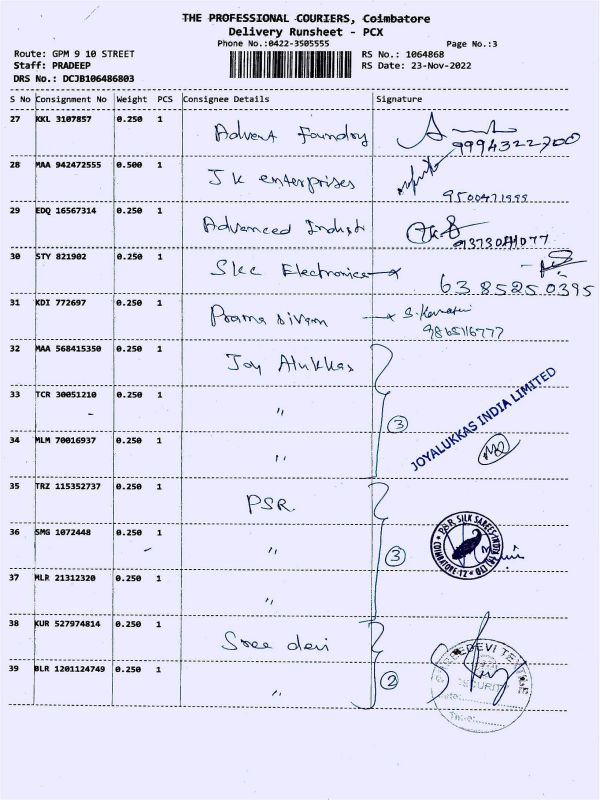 THE PROFESSIONAL COURIERS, Coimbatore
Delivery Runsheet - PCX
Phone No.:0422-3505555
Page No.:3
Route: GPM 9 10 STREET
RS No.: 1064868
Staff: PRADEEP
RS Date: 23-Nov-2022
DRS No.: DCJB106486803
S No Consignment No Weight PCS Consignee Details Signature
27 KKL 3107857 0.250 1 Advent Foundry 9994322700
28 MAA 942472555 0.500 1 J K enterprises 9500471999
29 EDQ 16567314 0.250 1 Advanced Indust
30 STY 821902 0.250 1 Skc Electronica 6385250395
31 KDI 772697 0.250 1 9865116777
32 MAA 568415350 0.250 1 Joy Alukkas
33 TCR 30051210 0.250 1 "
34 MLM 70016937 0.250 1 "
3
JOYALUKKAS INDIA LIMITED
35 TRZ 115352737 0.250 1 PSR
36 SMG 1072448 0.250 1 "
37 MLR 21312320 0.250 1 "
3
P.S.R. SILK SAREES INDIA (COIMBATORE-12
38 KUR 527974814 0.250 1 Sree devi
39 BLR 1201124749 0.250 1 "
2
SREEDEVI TEXTILE
SECURITY